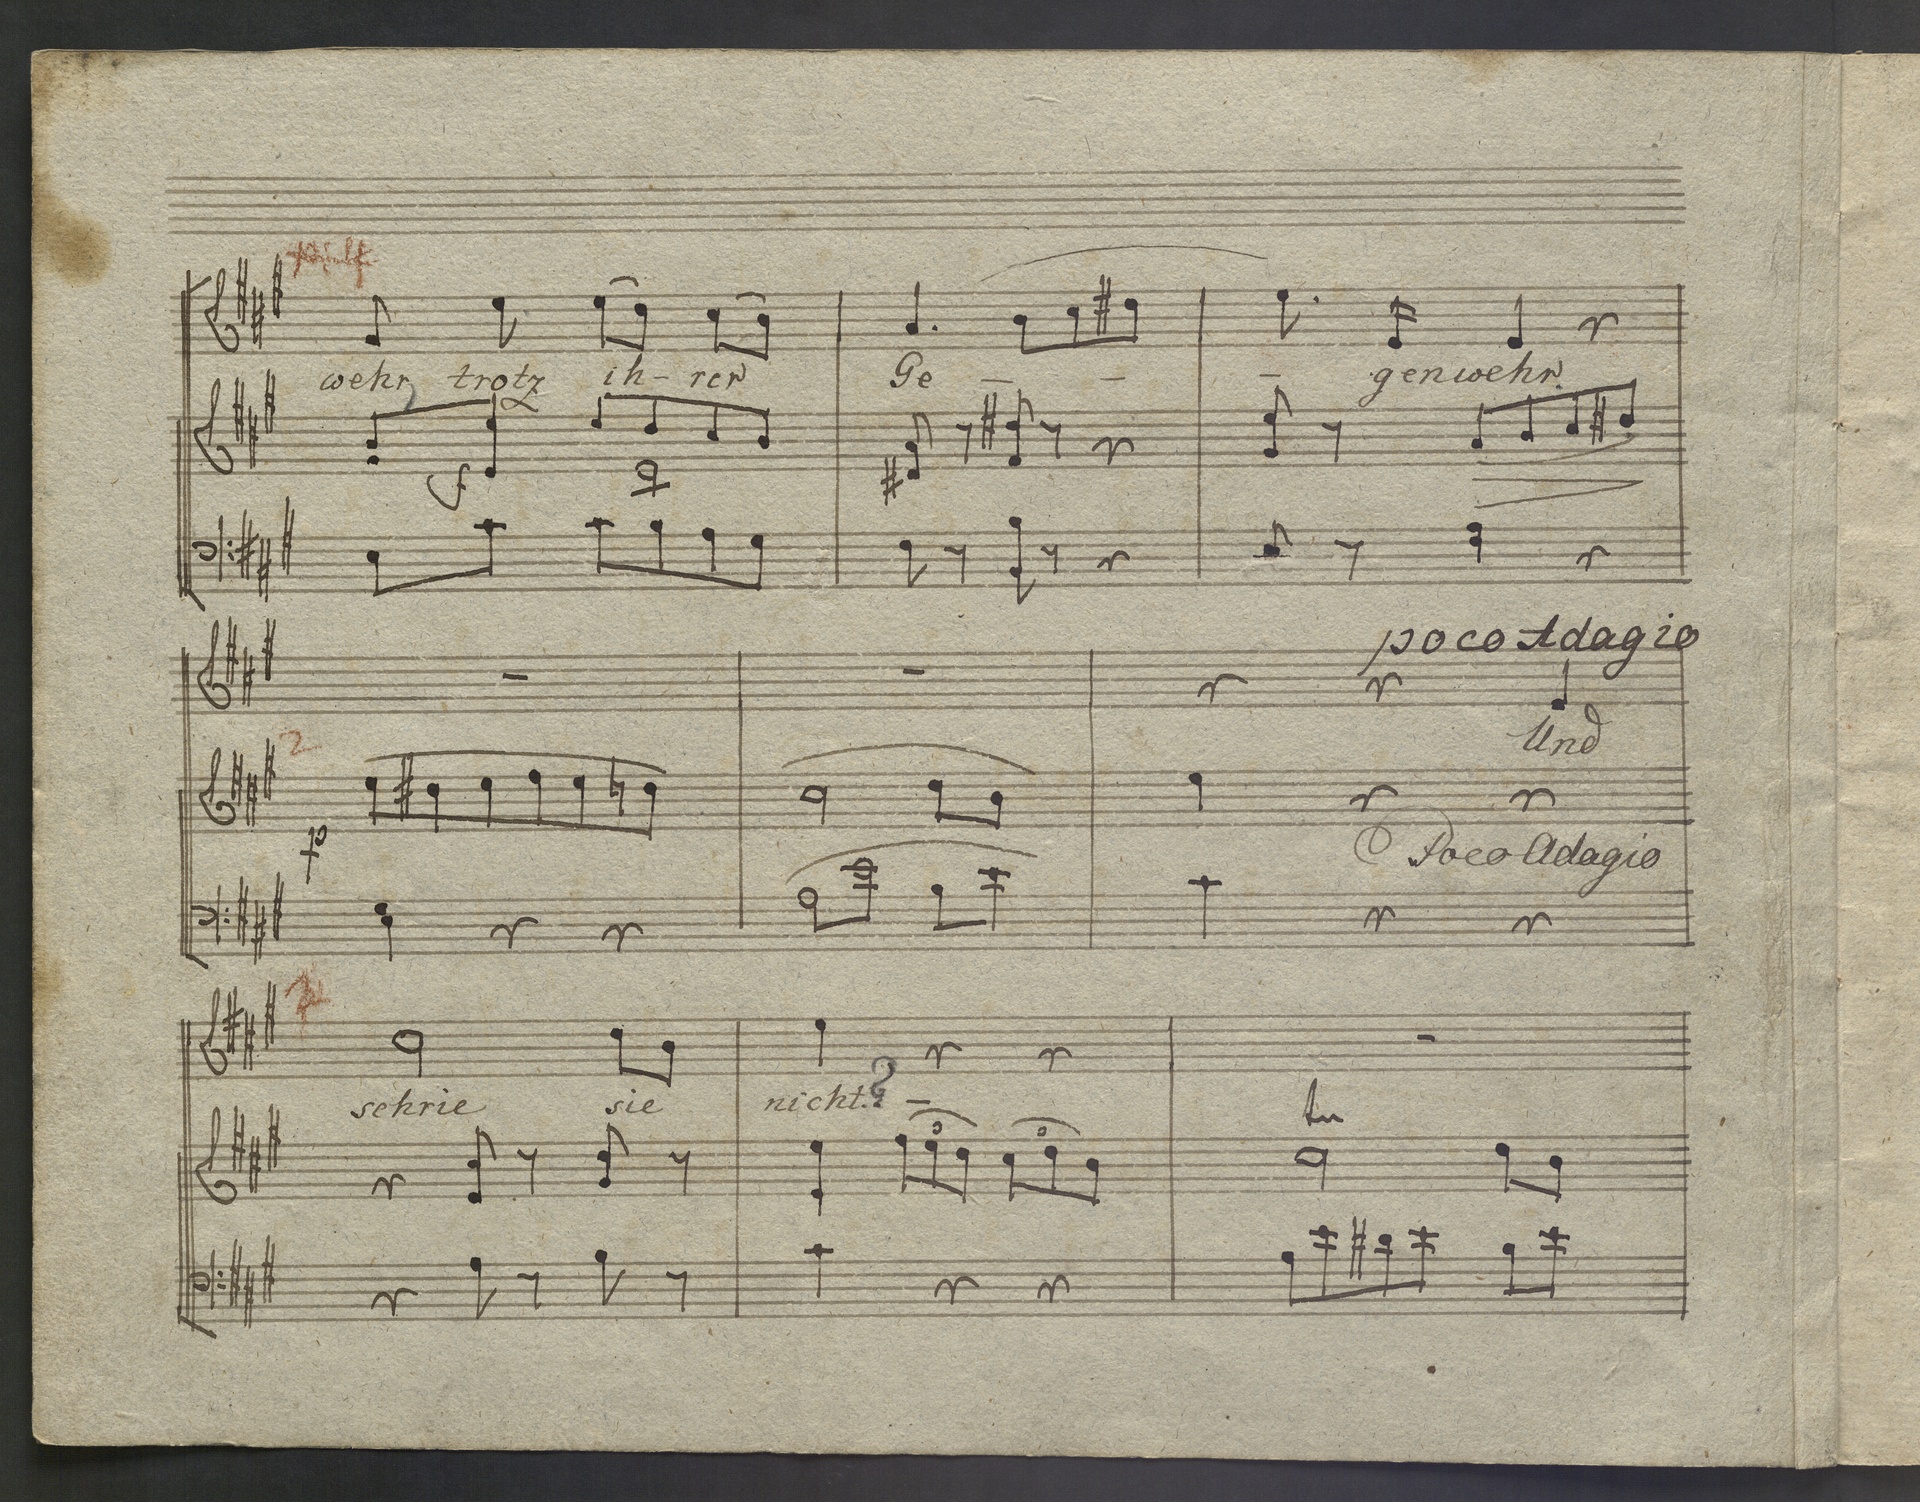 wehr trotz ih- rer Ge - - - genwehr.
f
poco Adagio
Und
2
p
Poco Adagio
schrie sie nicht? -
3 3
tr